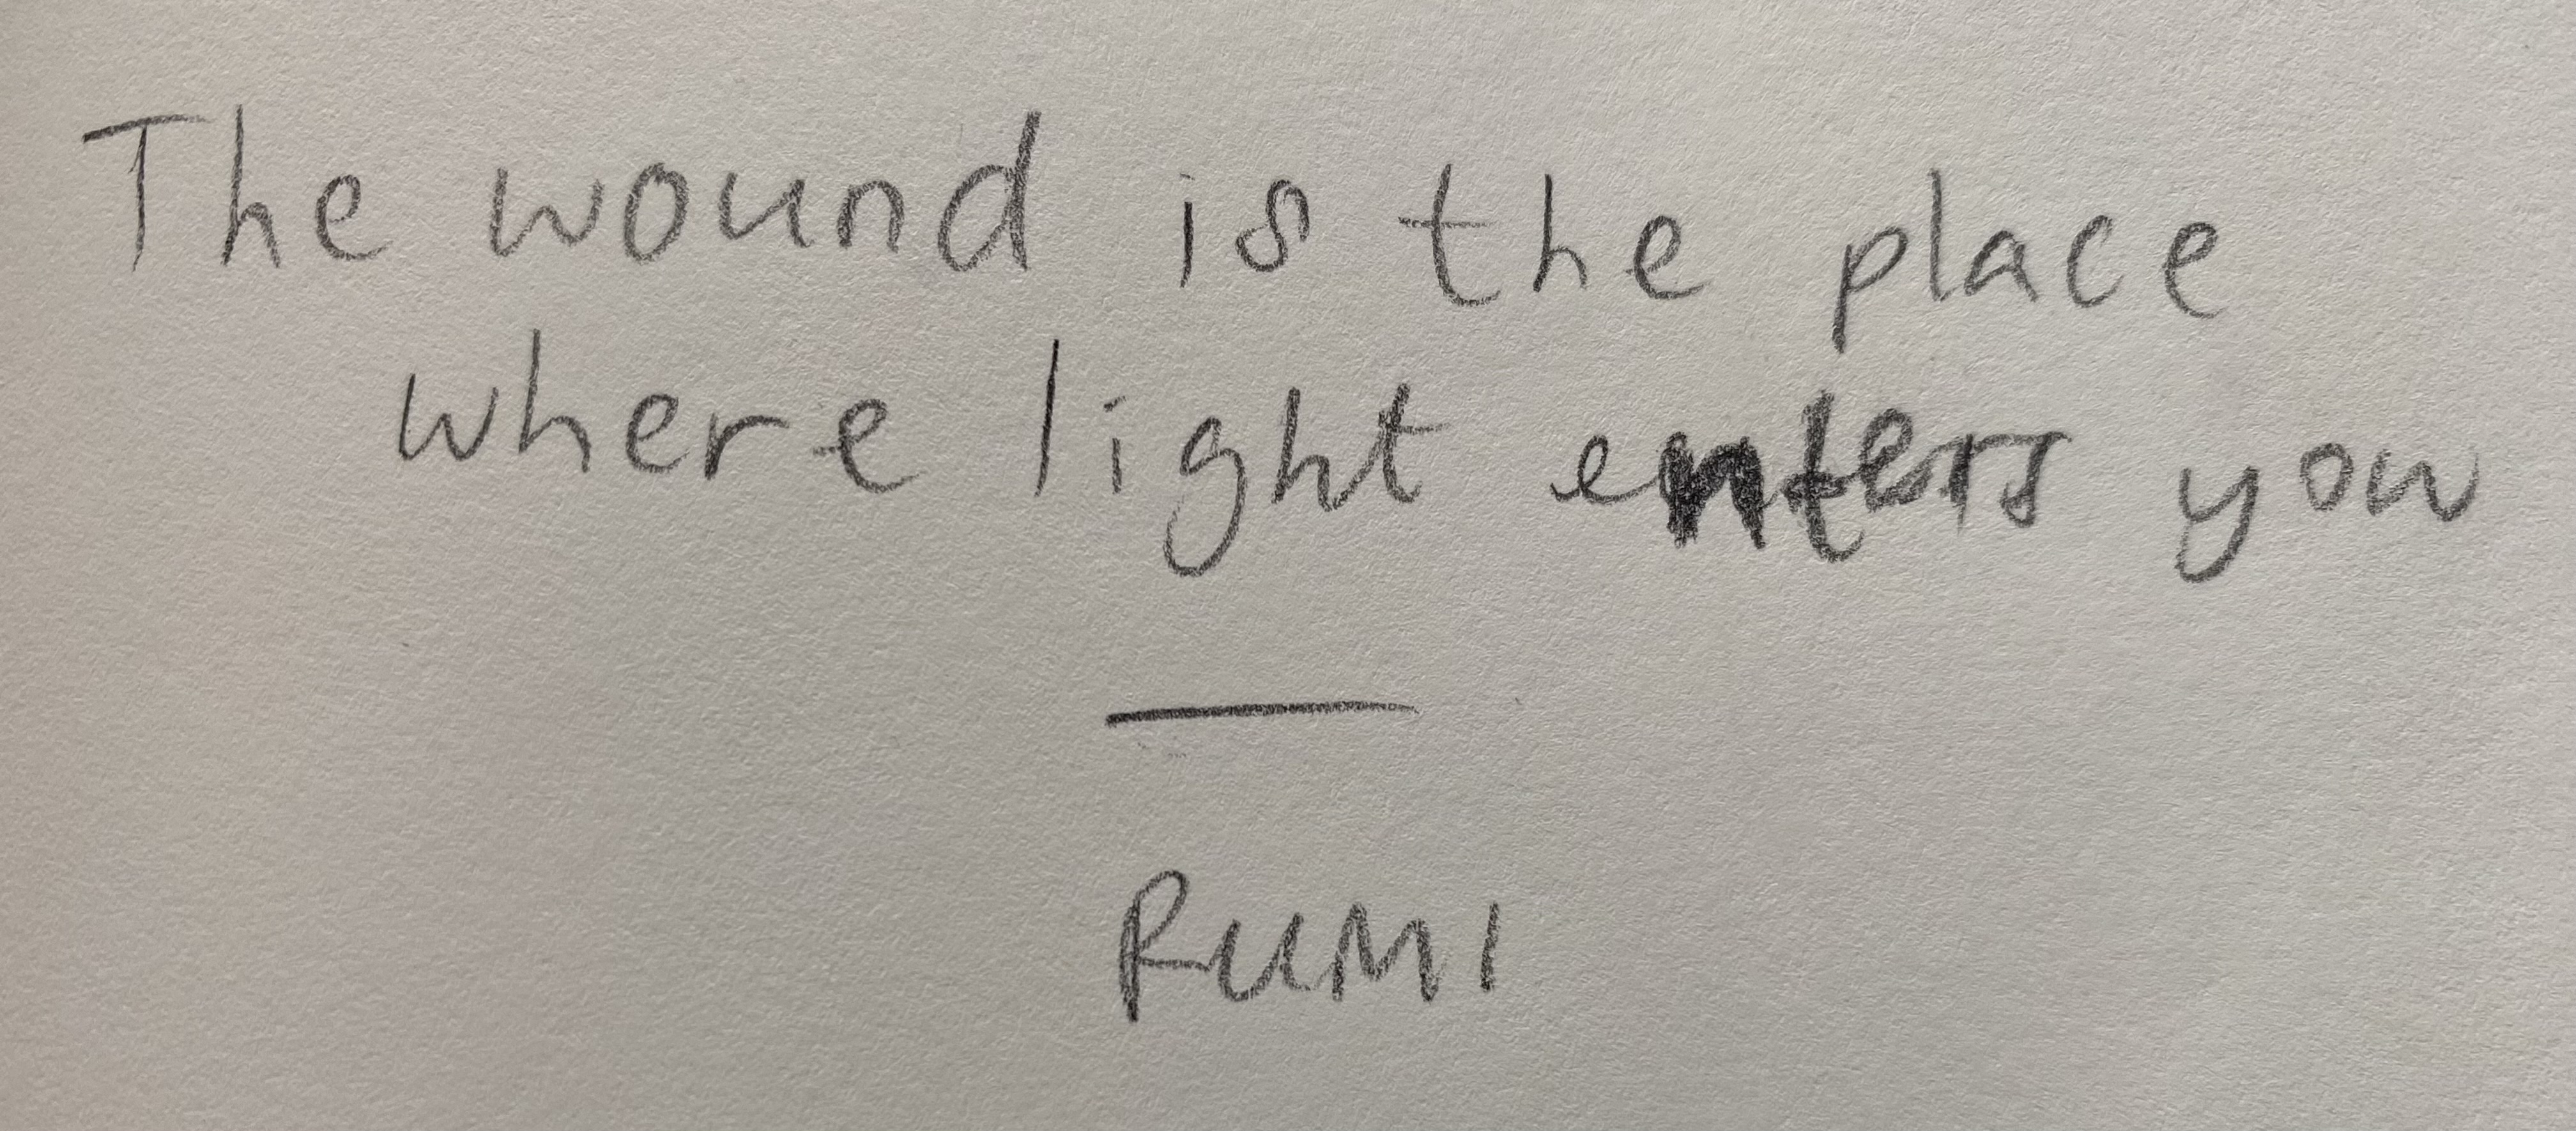 The wound is the place
where light enters you
—
RUMI